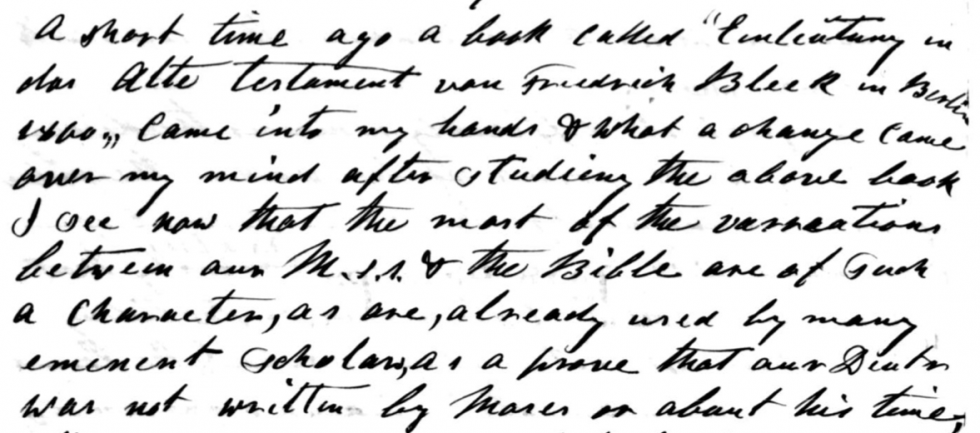 A short time ago a book called "Einleitung in
das Alte testament von Friedrich Bleek in Berlin
1860„ Came into my hands & what a change came
over my mind after studieng the above book
I see now that the most of the varnaations
between our M.s.s. & the Bible are of such
a Character, as are, already used by many
eminent Scholars, as a prove that our Deutr
was not written by Moses or about his time,